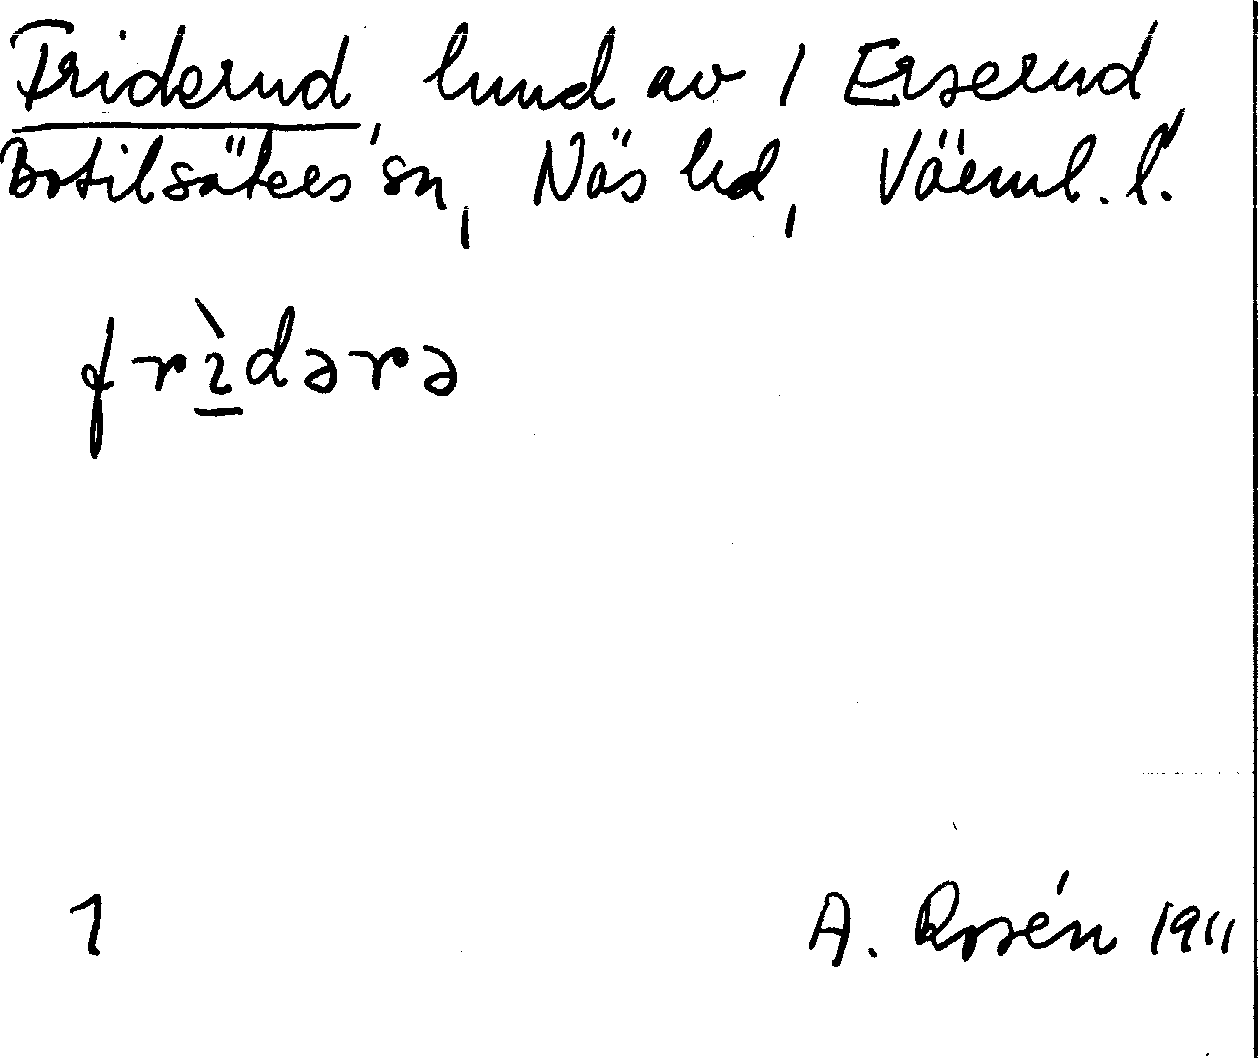 Friderud, lund av 1 Erserud,
Botilsäters sn, Näs hd, Värml. l.
frìdərə
1
A. Rosén 1911